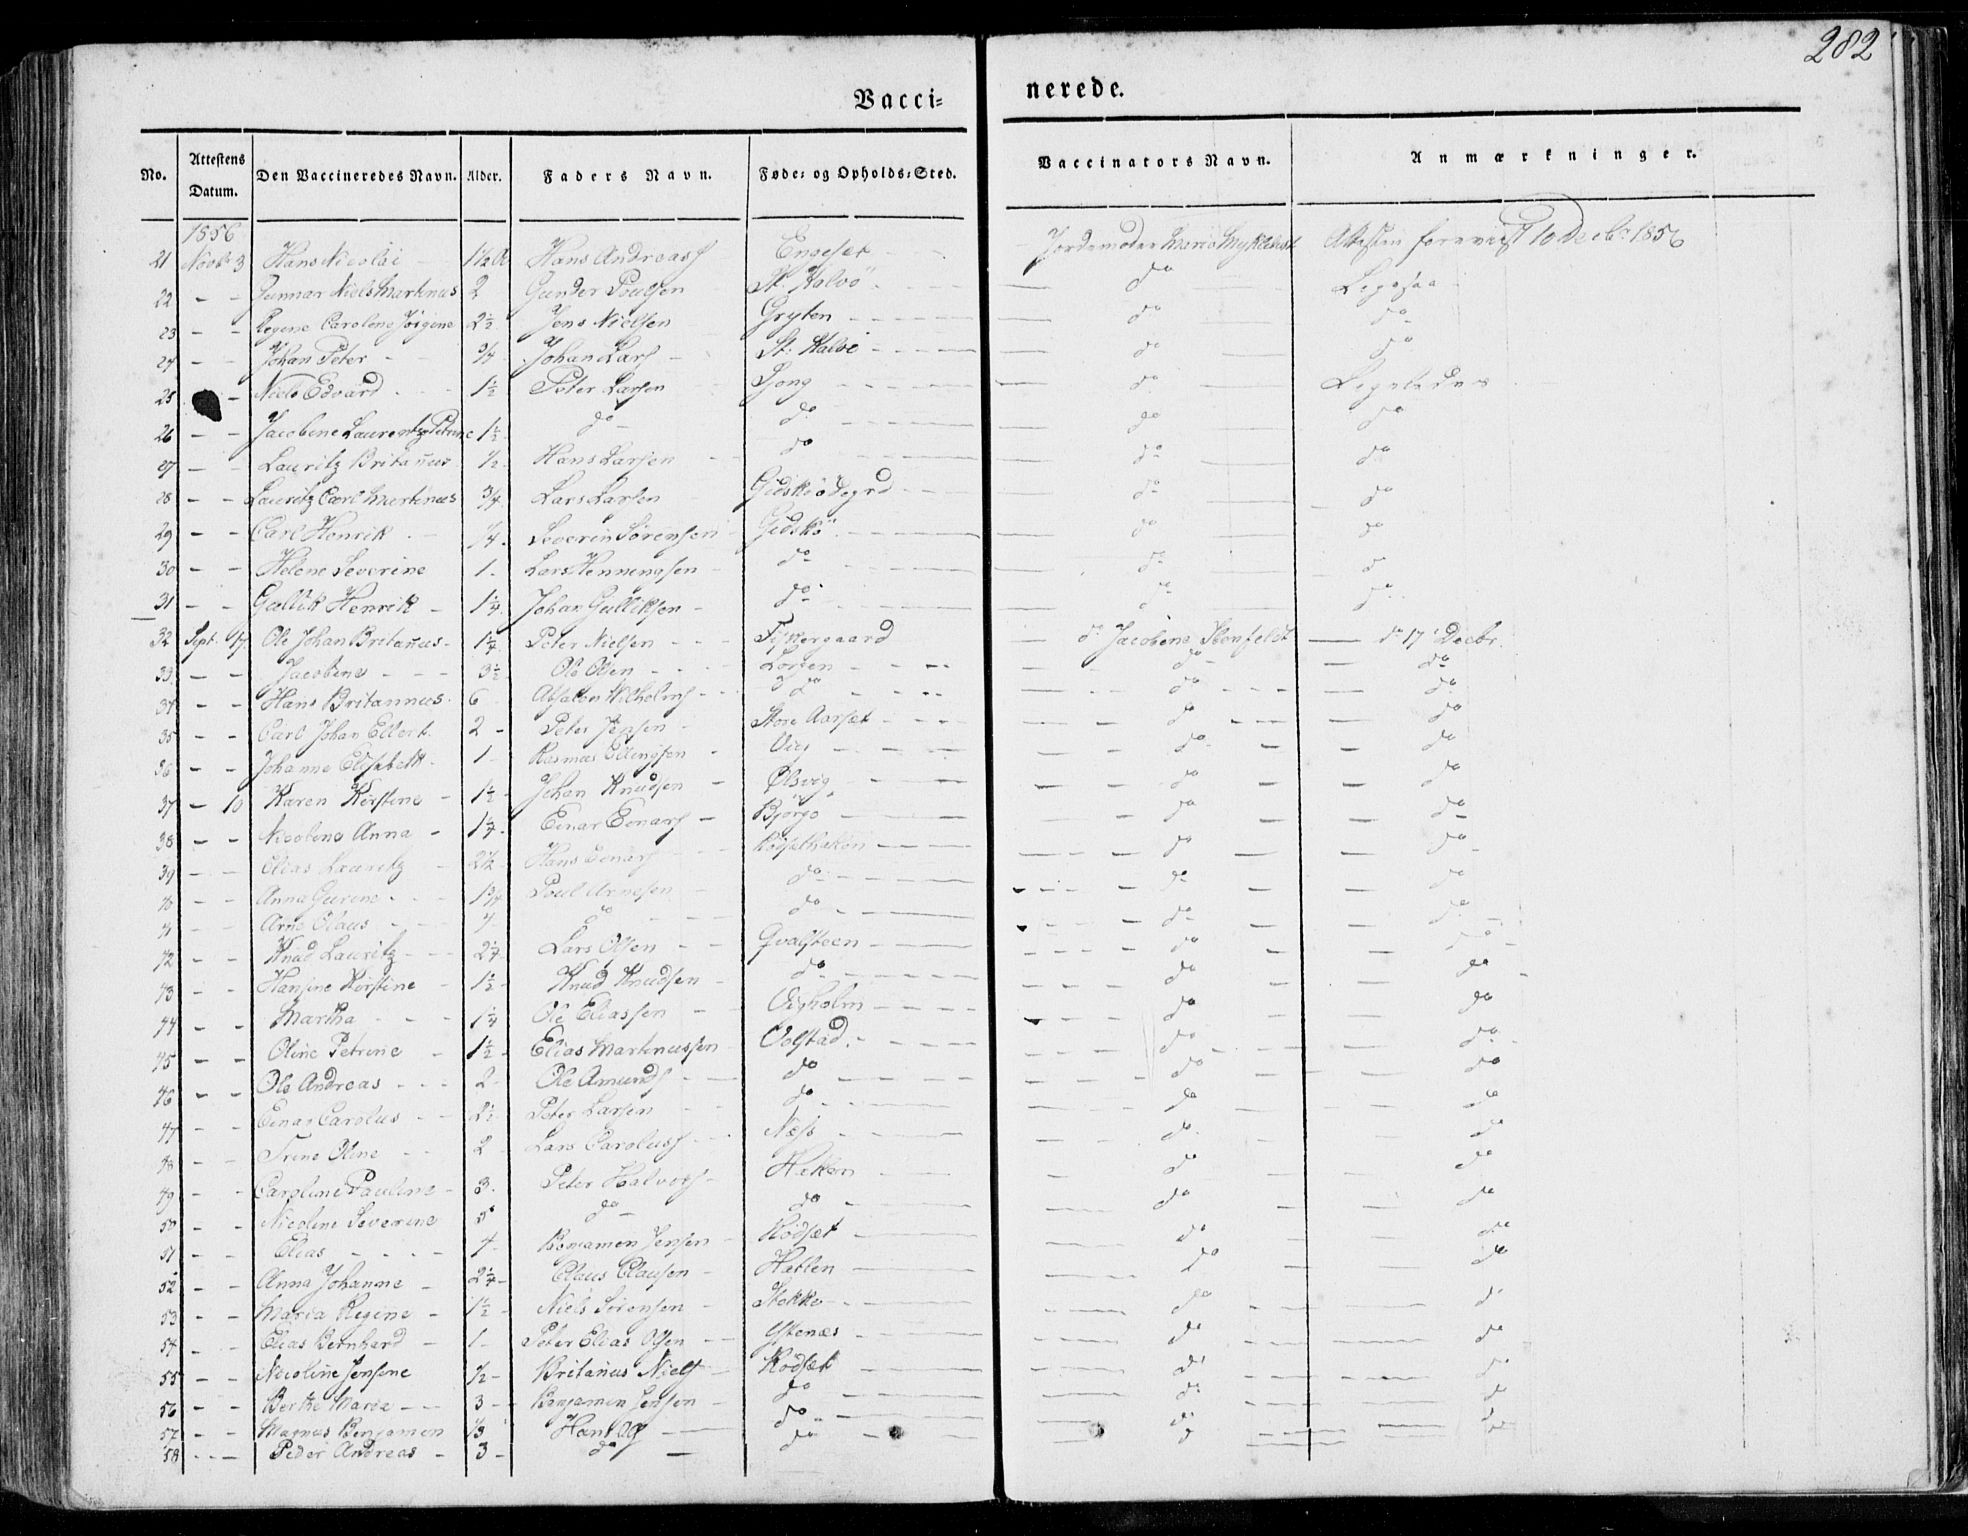 282
Vacci= nerede.
No. Attestens Datum. Den Vaccineredes Navn. Alder. Faders Navn. Føde= og Opholds=Sted. Vaccinators Navn. Anmærkninger.
1856
21 Novbr 3 Hans Nicolai 1½ A Hans Andreass Engeset Jordemoder Maria Myklebust Attesten foreviist 10 Decbr 1856
22 - - Gunnar Niels Martinus 2 Gunder Poulsen St. Kalvö do Ligesaa
23 - - Regine Caroline Jörgine 2½ Jens Nielsen Gryten do do
24 - - Johan Peter ¾ Johan Lars St. Kalvö do do
25 - Niels Edvard 1½ Peter Larsen Gjong do Ligeledes
26 - - Jacobine Laurentze Petrine 1½ do do do do
27 - - Lauritz Britanus ½ Hans Larsen do do do
28 - - Lauritz Carl Martinus ¾ Lars Larsen Gidskiödegrd do do
29 - - Carl Henrik ¼ Severin Sörensen Gidskö do do
30 - - Helene Severine 1 Lars Henningsen do do do
31 - - Gullik Henrik 1¼ Johan Gulliksen do do do
32 Sept. 17 Ole Johan Britanus 1¼ Peter Nielsen Fiskergaard do Jacobine Stenfeldt do 17 Decbr.
33 - - Jacobine 3½ Ole Olsen do do
34 - - Hans Britannus 6 Absalon Vilhelms do do do
35 - - Carl Johan Ellert 2 Peter Jensen Store Aarset do do
36 - - Johanne Elisabeth 1 Rasmus Ellingsen do do
37 - 10 Karen Kirstine 1½ Johan Knudsen Ölsvig do do
38 - - Nicoline Anna 1¼ Einar Einars Björgo do do
39 - - Elias Lauritz 2½ Hans Einars Rödsethaken do do
40 - - Anna Gurine 1¾ Poul Arnesen do do do
41 - - Arne Olaus 4 do do do do
42 - - Knud Lauritz 2¼ Lars Olsen Qvalsteen do do
43 - - Hansine Kirstine 1½ Knud Knudsen do do do
44 - - Martha 1¼ Ole Eliassen Vigholm do do
45 - - Oline Petrine 1½ Elias Martinussen Volstad do do
46 - - Ole Andreas 2 Ole Amunds do do do
47 - - Einar Carolus 2½ Peter Larsen do do do
48 - - Trine Oline 2 Lars Carolus Næss do do
49 - - Caroline Pauline 3 Peter Halvors Haken do do
50 - - Nicoline Severine 5 do do do do
51 - - Elias 4 Benjamin Jensen Rödset do do
52 - - Anna Johanne 2¼ Claus Clausen Hatlen do do
53 - - Maria Regine 1½ Niels Sörensen Stokke do do
54 - - Elias Bernhard 1 Peter Elias Olsen Ystenæs do do
55 - - Nicoline Jensine ½ Britanus Niels Rödset do do
56 - - Berthe Marie 3 Benjamin Jensen do do do
57 - - Magnus Benjamin ⅓ do do do
58 - - Peder Andreas 3 do do do